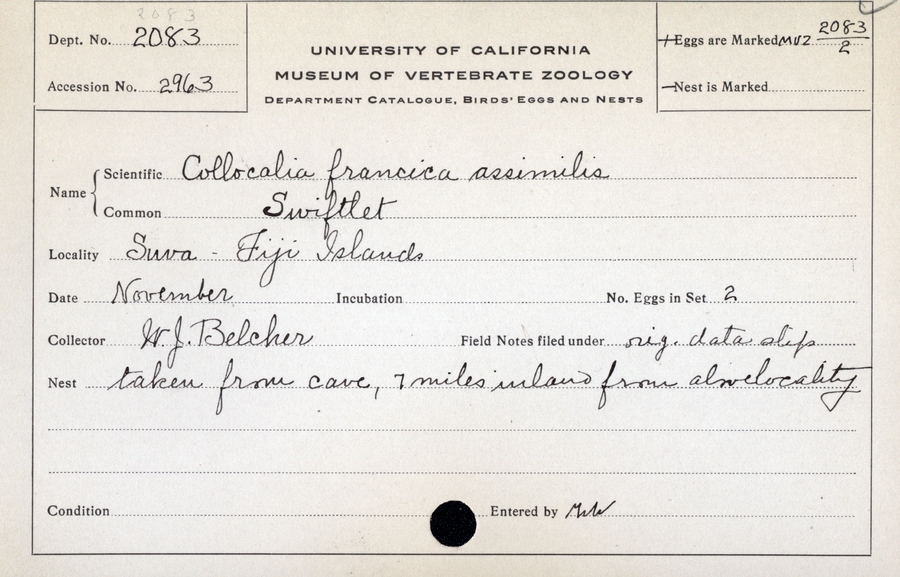 2083
Dept. No. 2083
Accession No. 2963
UNIVERSITY OF CALIFORNIA
MUSEUM OF VERTEBRATE ZOOLOGY
DEPARTMENT CATALOGUE, BIRDS' EGGS AND NESTS
Eggs are Marked MVZ 2083/2
Nest is Marked
Name
Scientific Collocalia francica assimilis
Common Swiftlet
Locality Suva - Fiji Islands
Date November Incubation No. Eggs in Set 2
Collector W. J. Belcher Field Notes filed under orig. data slip
Nest taken from cave, 7 miles inland from above locality
Condition Entered by